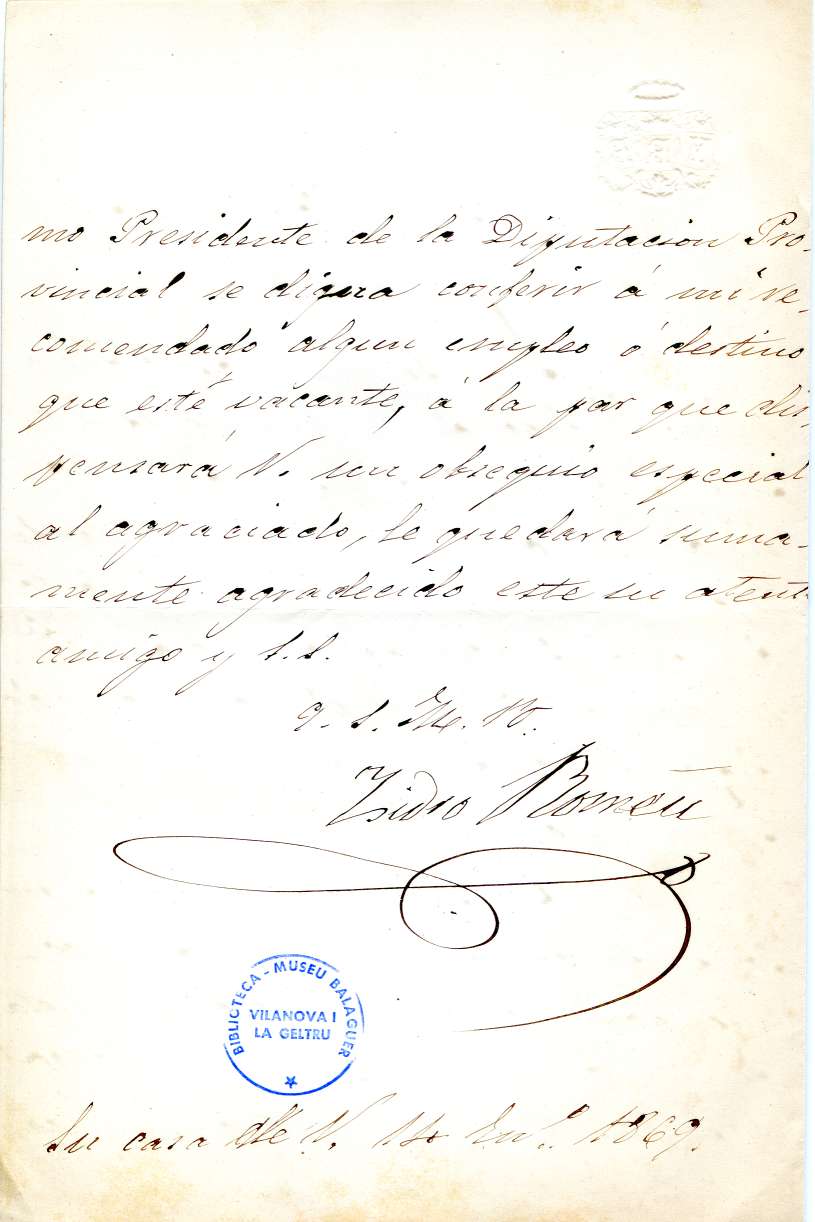 mo Presidente de la Diputacion Pro-
vincial se digna conferir á mi re-
comendado algun empleo ó destino
que esté vacante, á la par que dis-
pensará V. un obsequio especial
al agraciado, le quedará suma-
mente agradecido este su atent
amigo y s.s.
q. s. M. B.
Isidro Roméu
BIBLIOTECA - MUSEU BALAGUER
VILANOVA I
LA GELTRU
Su casa de V. 14 En.º 1869.